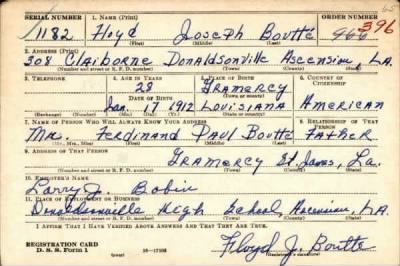 SERIAL NUMBER 1. NAME (Print) ORDER NUMBER
1182 Floyd Joseph Boutte 396
(First) (Middle) (Last)
2. ADDRESS (Print)
308 Claiborne Donaldsonville Ascension, LA.
(Number and street or R. F. D. number) (Town) (County) (State)
3. TELEPHONE 4. AGE IN YEARS 5. PLACE OF BIRTH 6. COUNTRY OF CITIZENSHIP
28 Gramercy
DATE OF BIRTH (Town or county)
Jan. 17 1912 Louisiana American
(Exchange) (Number) (Mo.) (Day) (Yr.) (State or country)
7. NAME OF PERSON WHO WILL ALWAYS KNOW YOUR ADDRESS 8. RELATIONSHIP OF THAT PERSON
Mr. Ferdinand Paul Boutte Father
(Mr., Mrs., Miss) (First) (Middle) (Last)
9. ADDRESS OF THAT PERSON
Gramercy St. James, La.
(Number and street or R. F. D. number) (Town) (County) (State)
10. EMPLOYER'S NAME
Larry J. Babin
11. PLACE OF EMPLOYMENT OR BUSINESS
Donaldsonville High School, Ascension, LA.
(Number and street or R. F. D. number) (Town) (County) (State)
I AFFIRM THAT I HAVE VERIFIED ABOVE ANSWERS AND THAT THEY ARE TRUE.
REGISTRATION CARD
D. S. S. Form 1 16-17105 Floyd J. Boutte
(Registrant's signature)